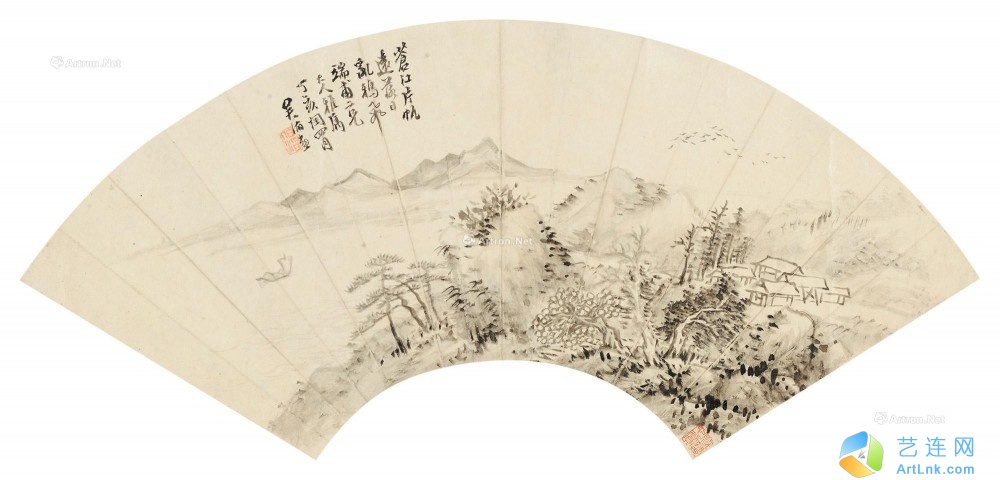 蒼江片帆
遠落日
亂鴉飛
端甫二兄
大人雅屬
丁亥閏四月
吴滔畫
Artron.Net
Artron.Net
Artron.Net
Artron.Net
艺连网
ArtLnk.com